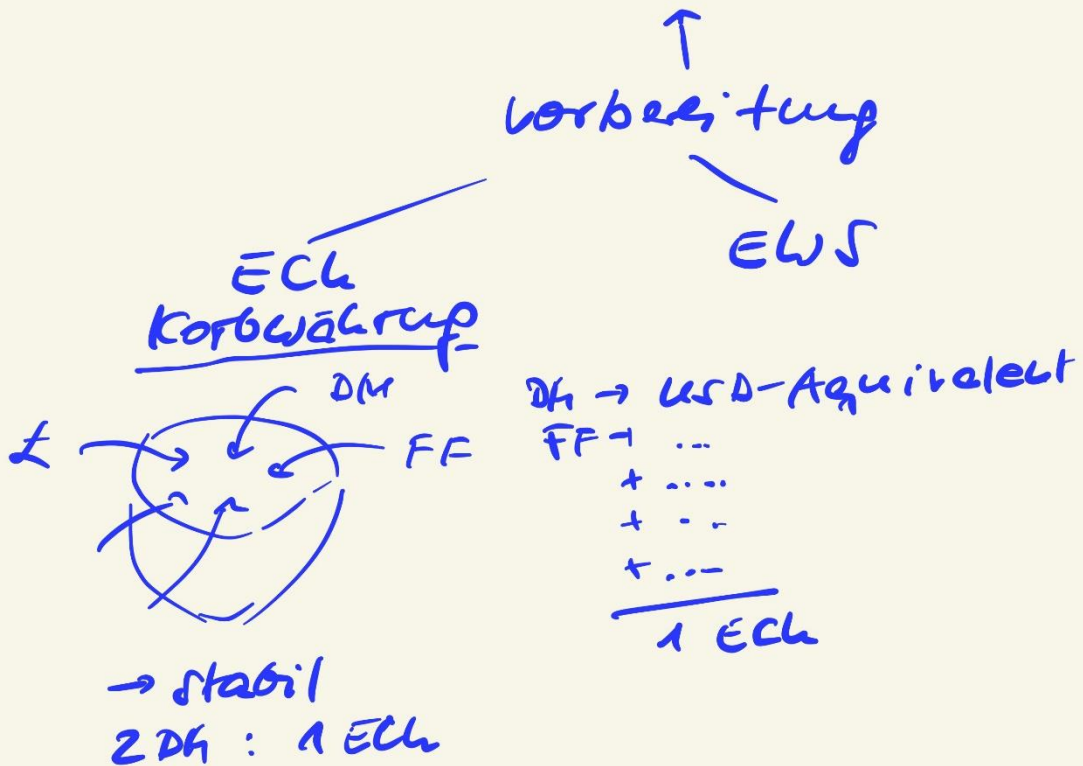 Vorbereitung
ECU
EWS
Korbwährung
£
DM
FF
DM → USD-Äquivalent
FF → ...
+ ....
+ ...
+ ....
1 ECU
→ stabil
2 DM : 1 ECU